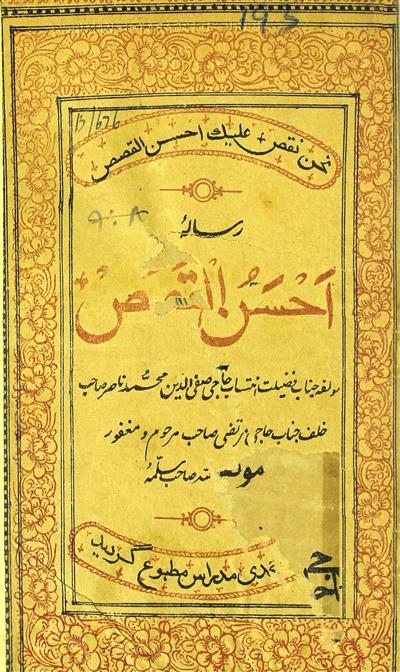 195
15/676
نحن نقص علیك احسن القصص
۹۰۸
رسالهٔ
اَحْسَنُ القصص
مولفه جناب فضیلت انتساب حاجی صفی الدین محمّد ناصر صاحب
خلف جناب حاجی مرتضی صاحب مرحوم و مغفور
صاحب سلّمهٔ
مدراس مطبوع گردید